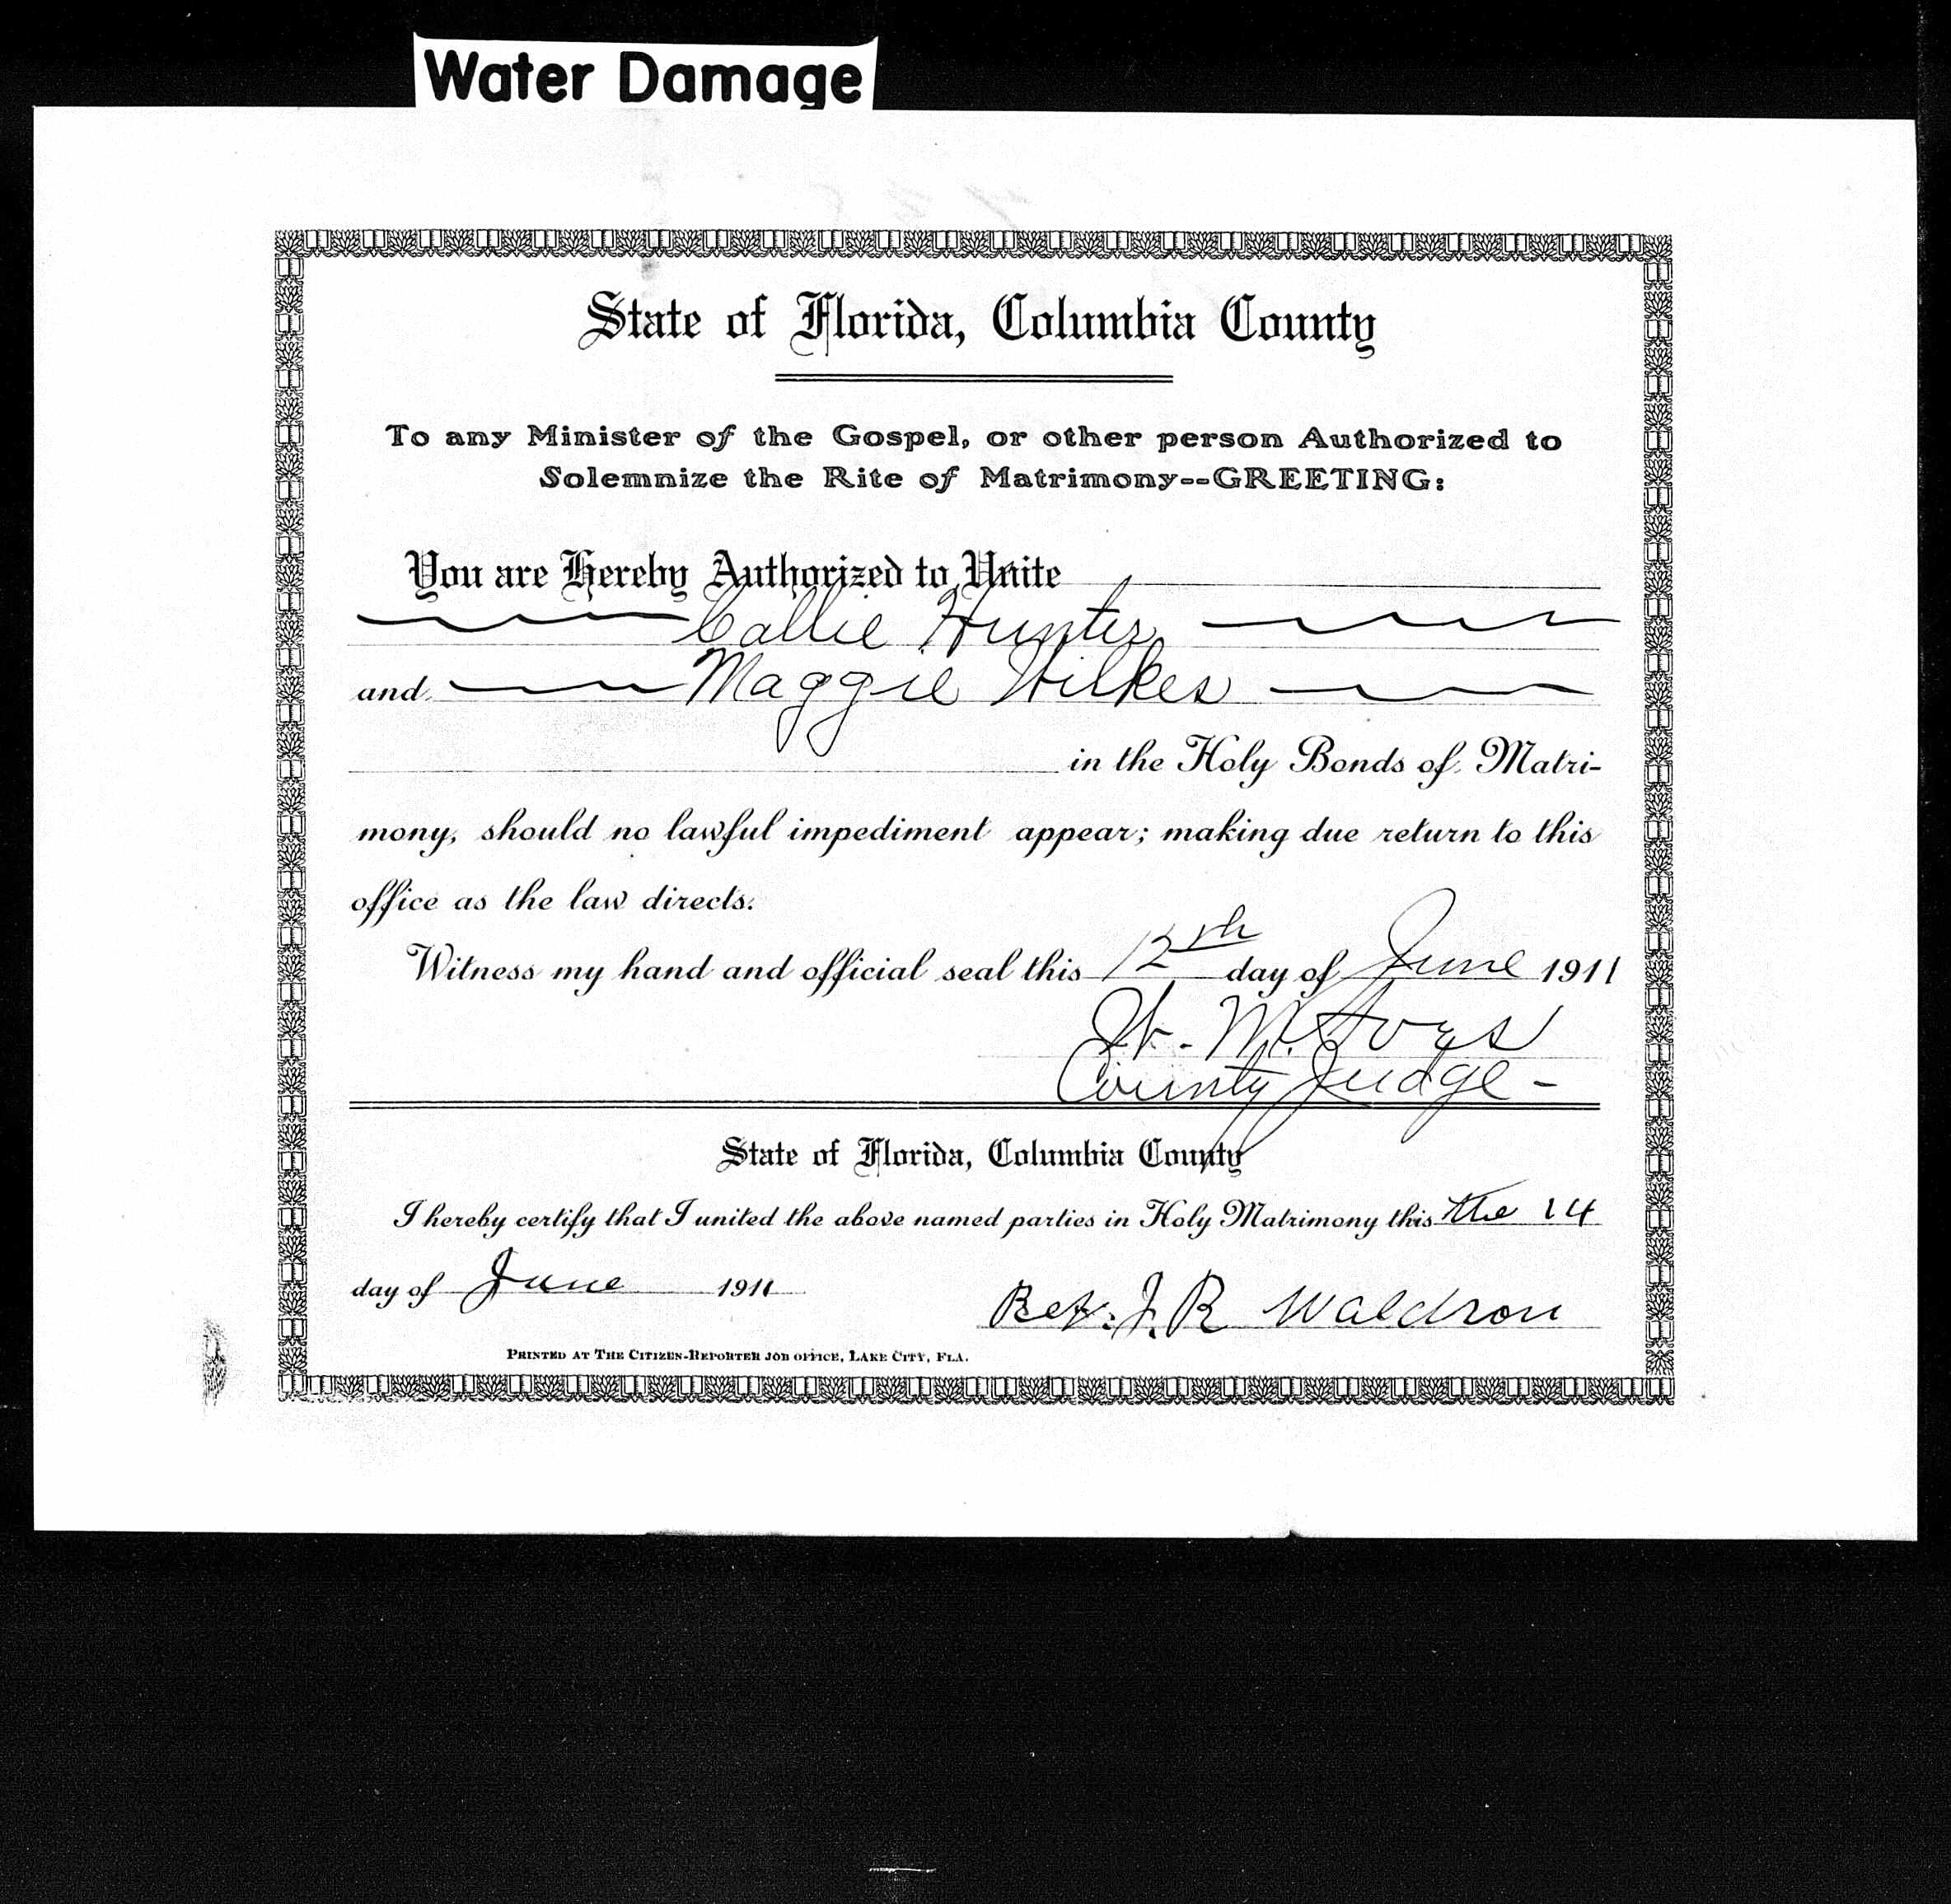 Water Damage
State of Florida, Columbia County
To any Minister of the Gospel, or other person Authorized to
Solemnize the Rite of Matrimony--GREETING:
You are Hereby Authorized to Unite
Callie Hunter
and Maggie Wilkes
in the Holy Bonds of Matri-
mony, should no lawful impediment appear; making due return to this
office as the law directs.
Witness my hand and official seal this 12th day of June 1911
W. M. Ives
County Judge -
State of Florida, Columbia County
I hereby certify that I united the above named parties in Holy Matrimony this the 14
day of June 1911
Rev. J. R Waldron
PRINTED AT THE CITIZEN-REPORTER JOB OFFICE, LAKE CITY, FLA.